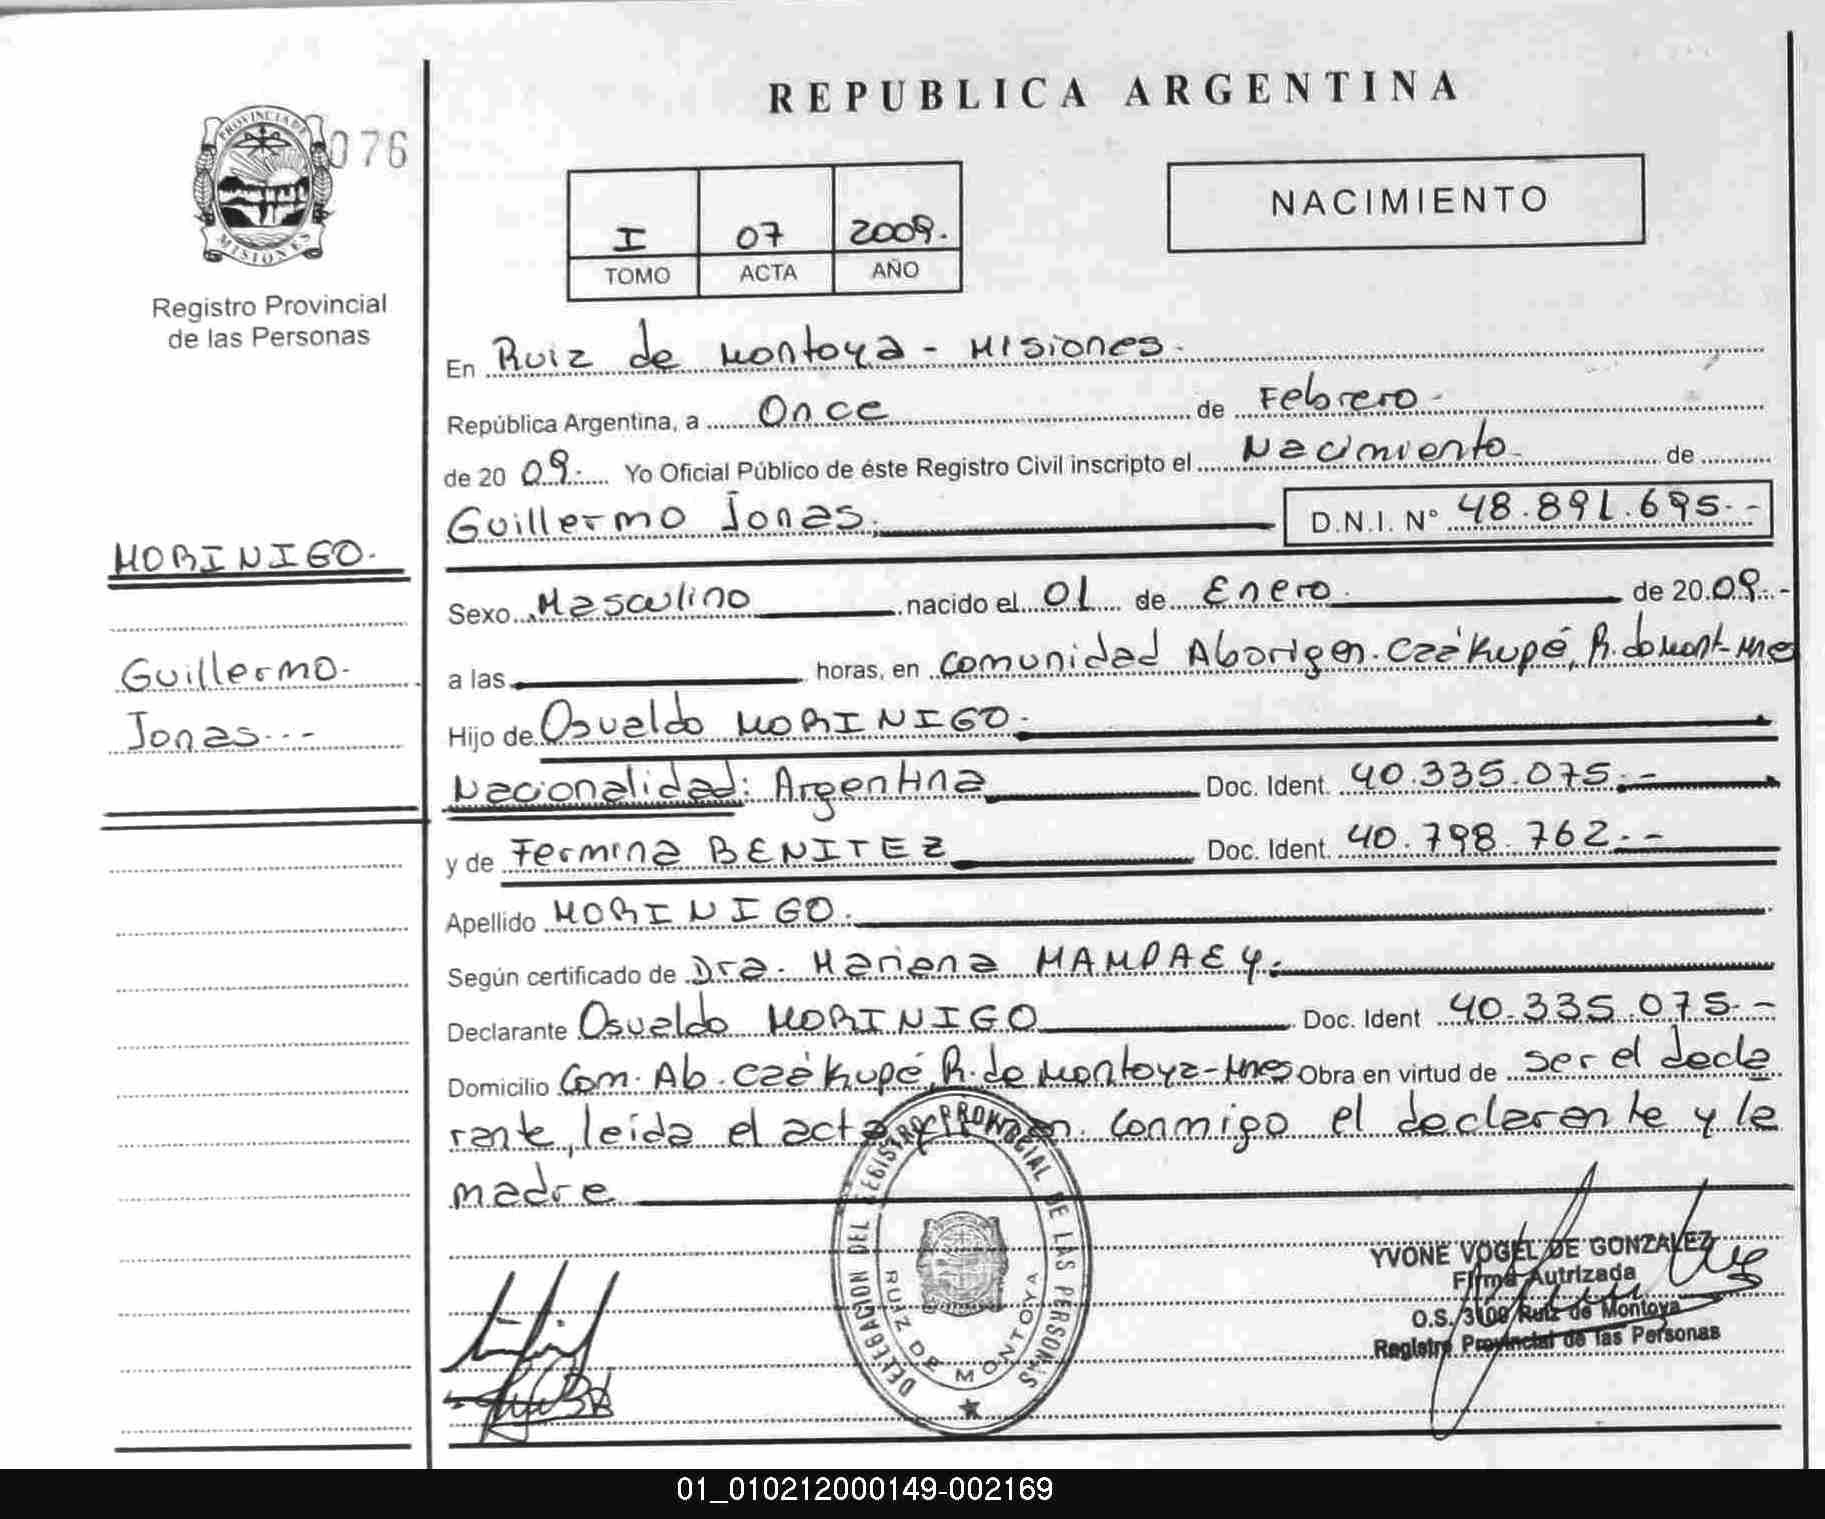 REPUBLICA ARGENTINA
PROVINCIA DE
MISIONES
076
Registro Provincial
de las Personas
I 07 2009.
TOMO ACTA AÑO
NACIMIENTO
En Ruiz de Montoya - Misiones.
República Argentina, a Once de Febrero -
de 20 09.- Yo Oficial Público de éste Registro Civil inscripto el Nacimiento de
Guillermo Jonas. D.N.I. N° 48.891.695.--
MORINIGO.
Sexo Masculino nacido el 01 de Enero. de 20.09.-
Guillermo.
a las horas, en Comunidad Aborigen. Caá Kupé, R. de Mont-Mnes
Jonas.--
Hijo de Osvaldo MORINIGO.
Nacionalidad: Argentina Doc. Ident. 40.335.075.-
y de Fermina BENITEZ Doc. Ident. 40.798.762.--
Apellido MORINIGO.
Según certificado de Dra. Mariana MAMPAEY.
Declarante Osvaldo MORINIGO Doc. Ident 40.335.075.-
Domicilio Com. Ab. Caá Kupé, R. de Montoya-Mnes Obra en virtud de ser el decla
rante, leída el acta conmigo el declarante y la
madre
DELEGACION DEL REGISTRO PROVINCIAL DE LAS PERSONAS
RUIZ DE MONTOYA
YVONE VOGEL DE GONZALEZ
Firma Autrizada
O.S. 3100 Ruiz de Montoya
Registro Provincial de las Personas
01_010212000149-002169